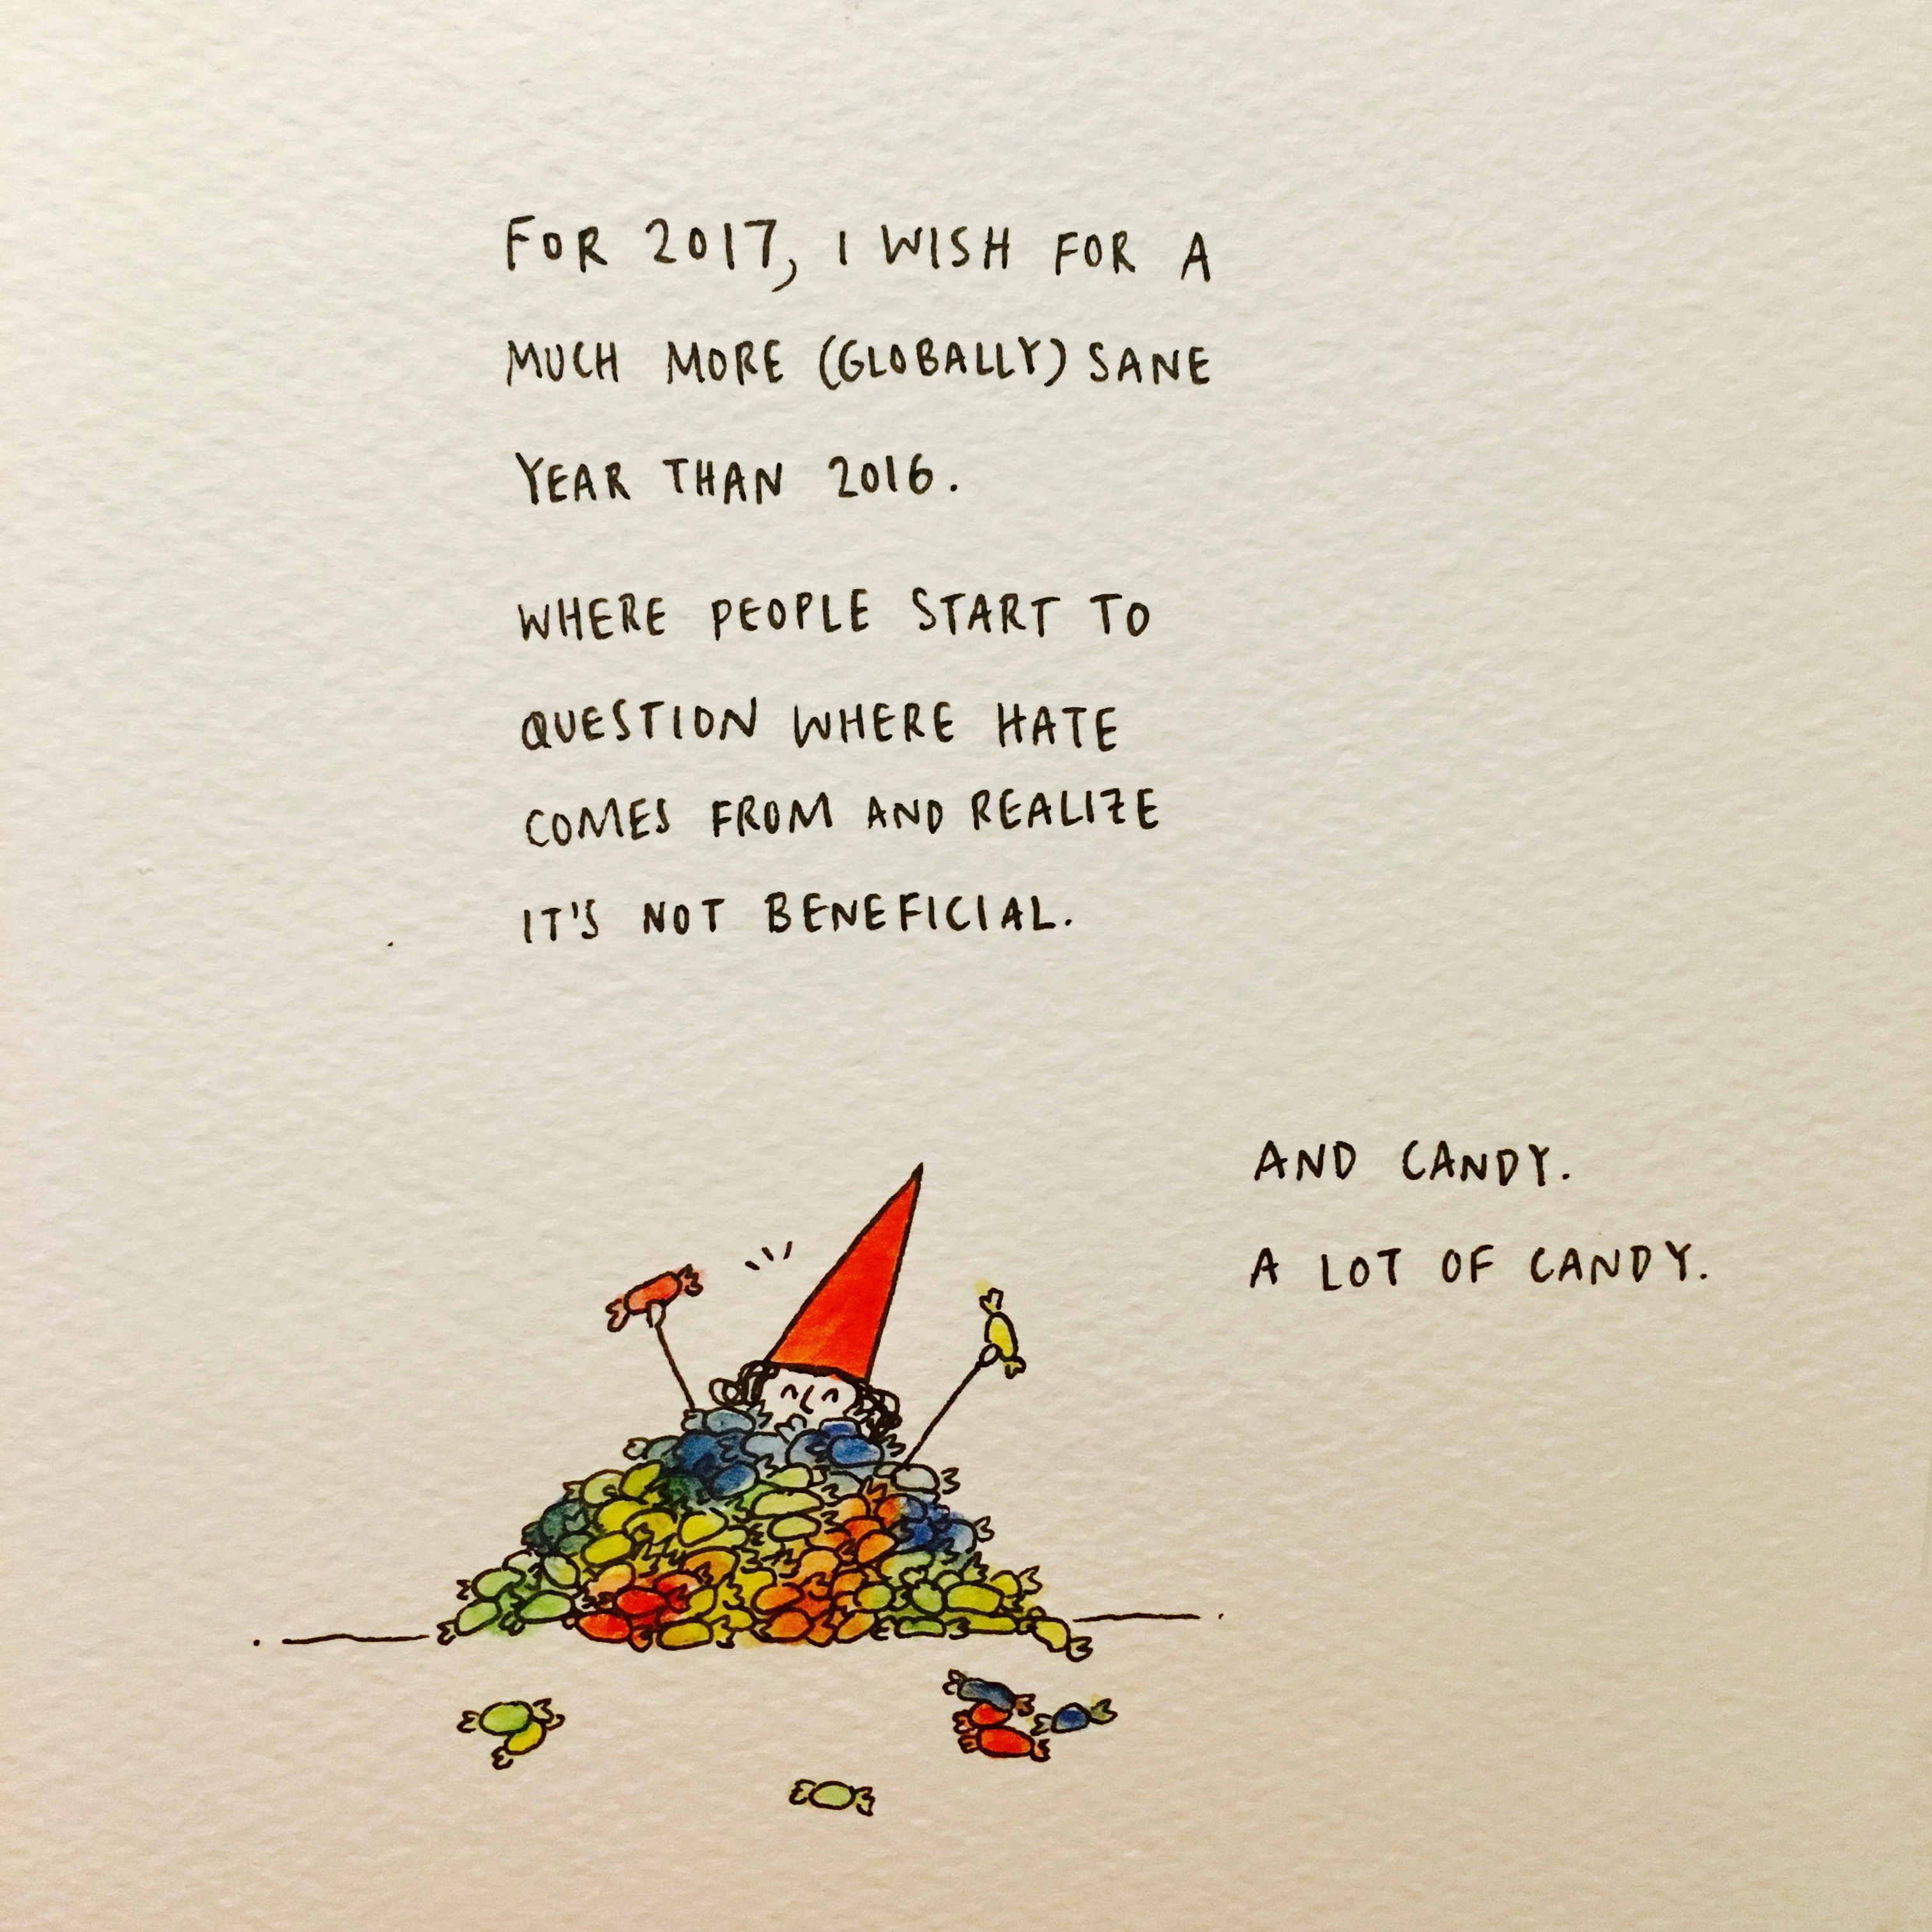 FOR 2017, I WISH FOR A
MUCH MORE (GLOBALLY) SANE
YEAR THAN 2016.
WHERE PEOPLE START TO
QUESTION WHERE HATE
COMES FROM AND REALIZE
IT'S NOT BENEFICIAL.
AND CANDY.
A LOT OF CANDY.